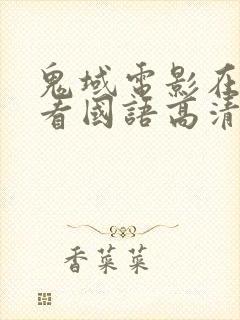 鬼域電影在
看國語高清
香菜菜